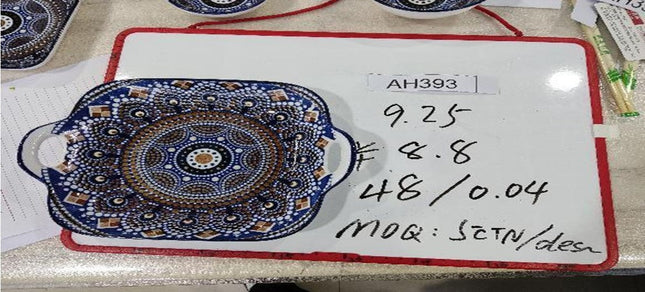 AH393
9.25
8.8
48/0.04
MOQ: 5CTN/desn